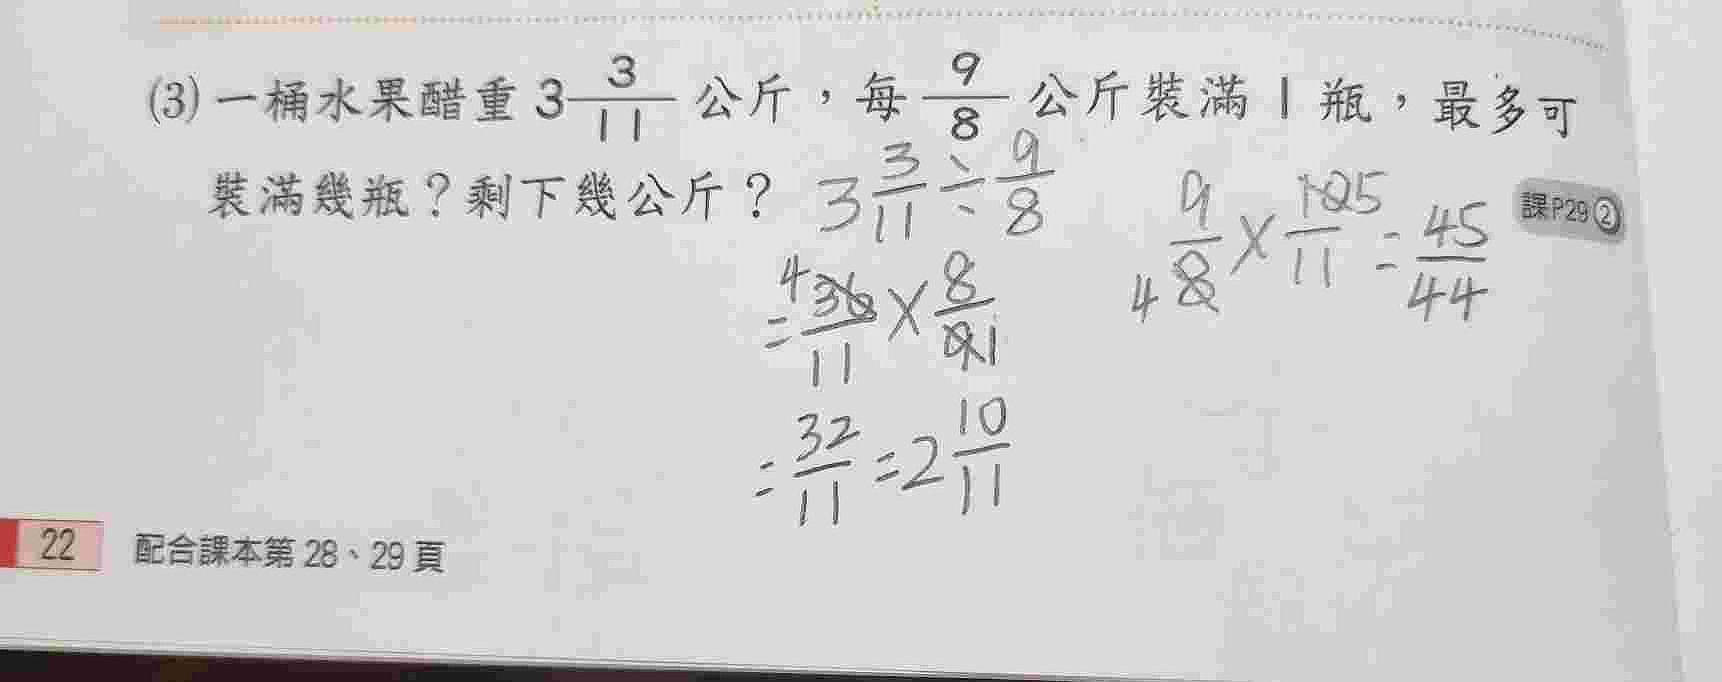 (3) 一桶水果醋重 3 3/11 公斤，每 9/8 公斤裝滿 1 瓶，最多可
裝滿幾瓶？剩下幾公斤？
課P29②
3 3/11 ÷ 9/8
= 4 36/11 × 8/9 1
= 32/11 = 2 10/11
9/8 4 × 10 5/11 = 45/44
22
配合課本第 28、29 頁